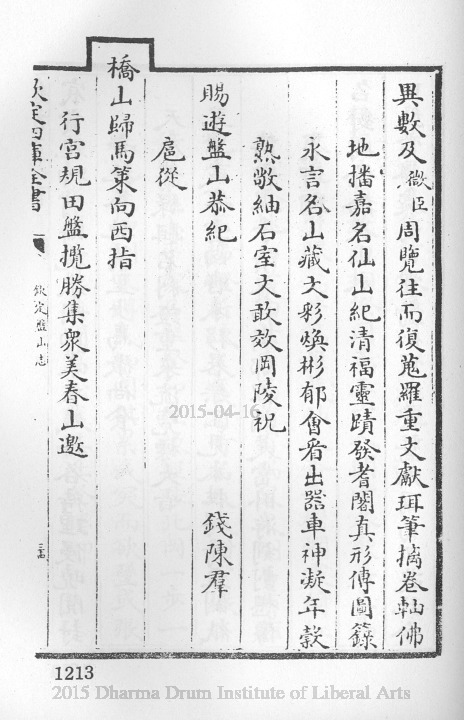 異數及微臣周覽往而復蒐羅重文獻珥筆摛卷軸佛
地播嘉名仙山紀清福靈蹟發耆闍真形傳圖籙
永言名山藏文彩煥彬郁會看出器車神凝年穀
熟敬紬石室文敢效岡陵祝
賜遊盤山恭紀 錢陳羣
扈從
橋山歸馬策向西指
行宮規田盤攬勝集衆美春山邀
欽定四庫全書
欽定盤山志
三四
2015-04-16
1213
2015 Dharma Drum Institute of Liberal Arts